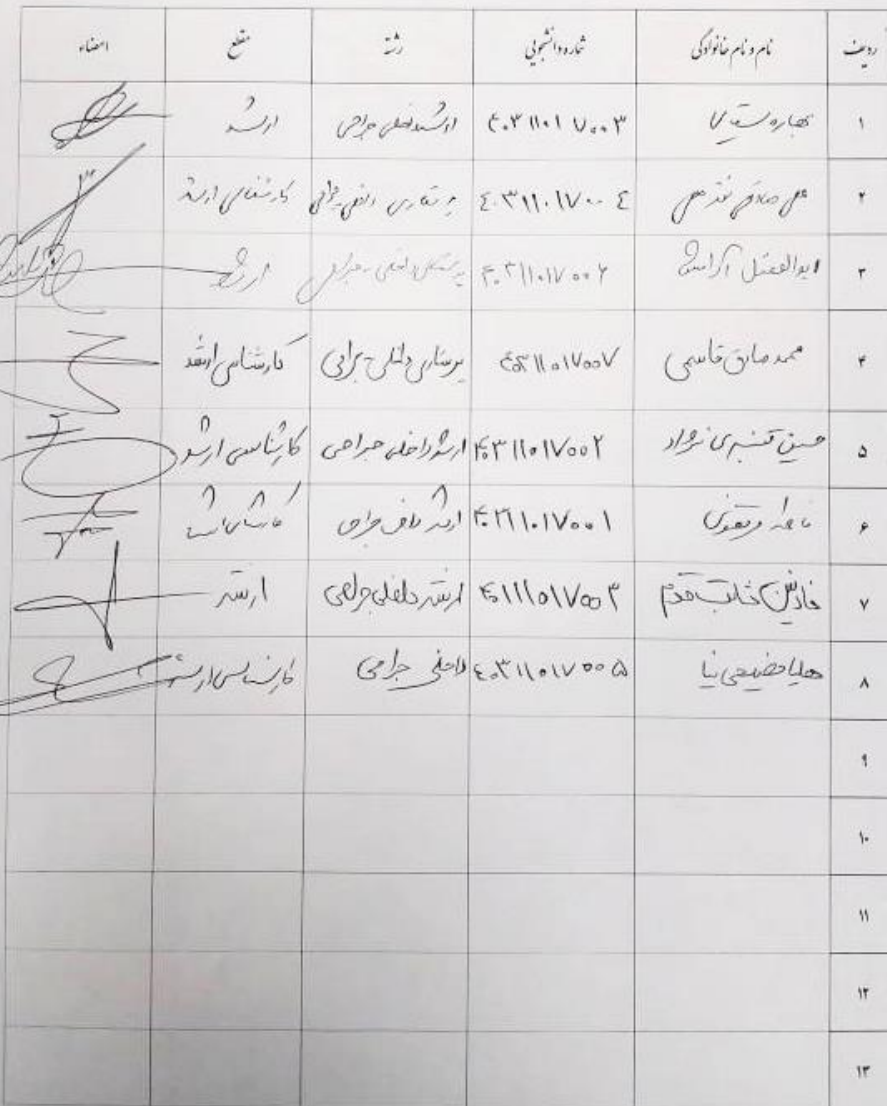 ردیف نام و نام خانوادگی شماره دانشجویی رشته مقطع امضاء
۱ بهاره ۴۰۳۱۱۰۱۷۰۰۳ ارشد داخلی جراحی ارشد
۲ علی صادق ۴۰۳۱۱۰۱۷۰۰۴ پرستاری داخلی جراحی کارشناسی ارشد
۳ ابوالفضل آرامش ۴۰۳۱۱۰۱۷۰۰۶ پرستاری داخلی - جراحی ارشد
۴ محمد صادق قاسمی ۴۰۳۱۱۰۱۷۰۰۷ پرستاری داخلی - جراحی کارشناسی ارشد
۵ حسین قنبری نژاد ۴۰۳۱۱۰۱۷۰۰۲ ارشد داخلی جراحی کارشناسی ارشد
۶ ۴۰۳۱۱۰۱۷۰۰۱ ارشد داخلی جراحی کارشناسی ارشد
۷ ۴۰۱۱۱۰۱۷۰۰۳ ارشد داخلی جراحی ارشد
۸ هلیا فضیحی نیا ۴۰۳۱۱۰۱۷۰۰۵ داخلی جراحی کارشناسی ارشد
۹
۱۰
۱۱
۱۲
۱۳